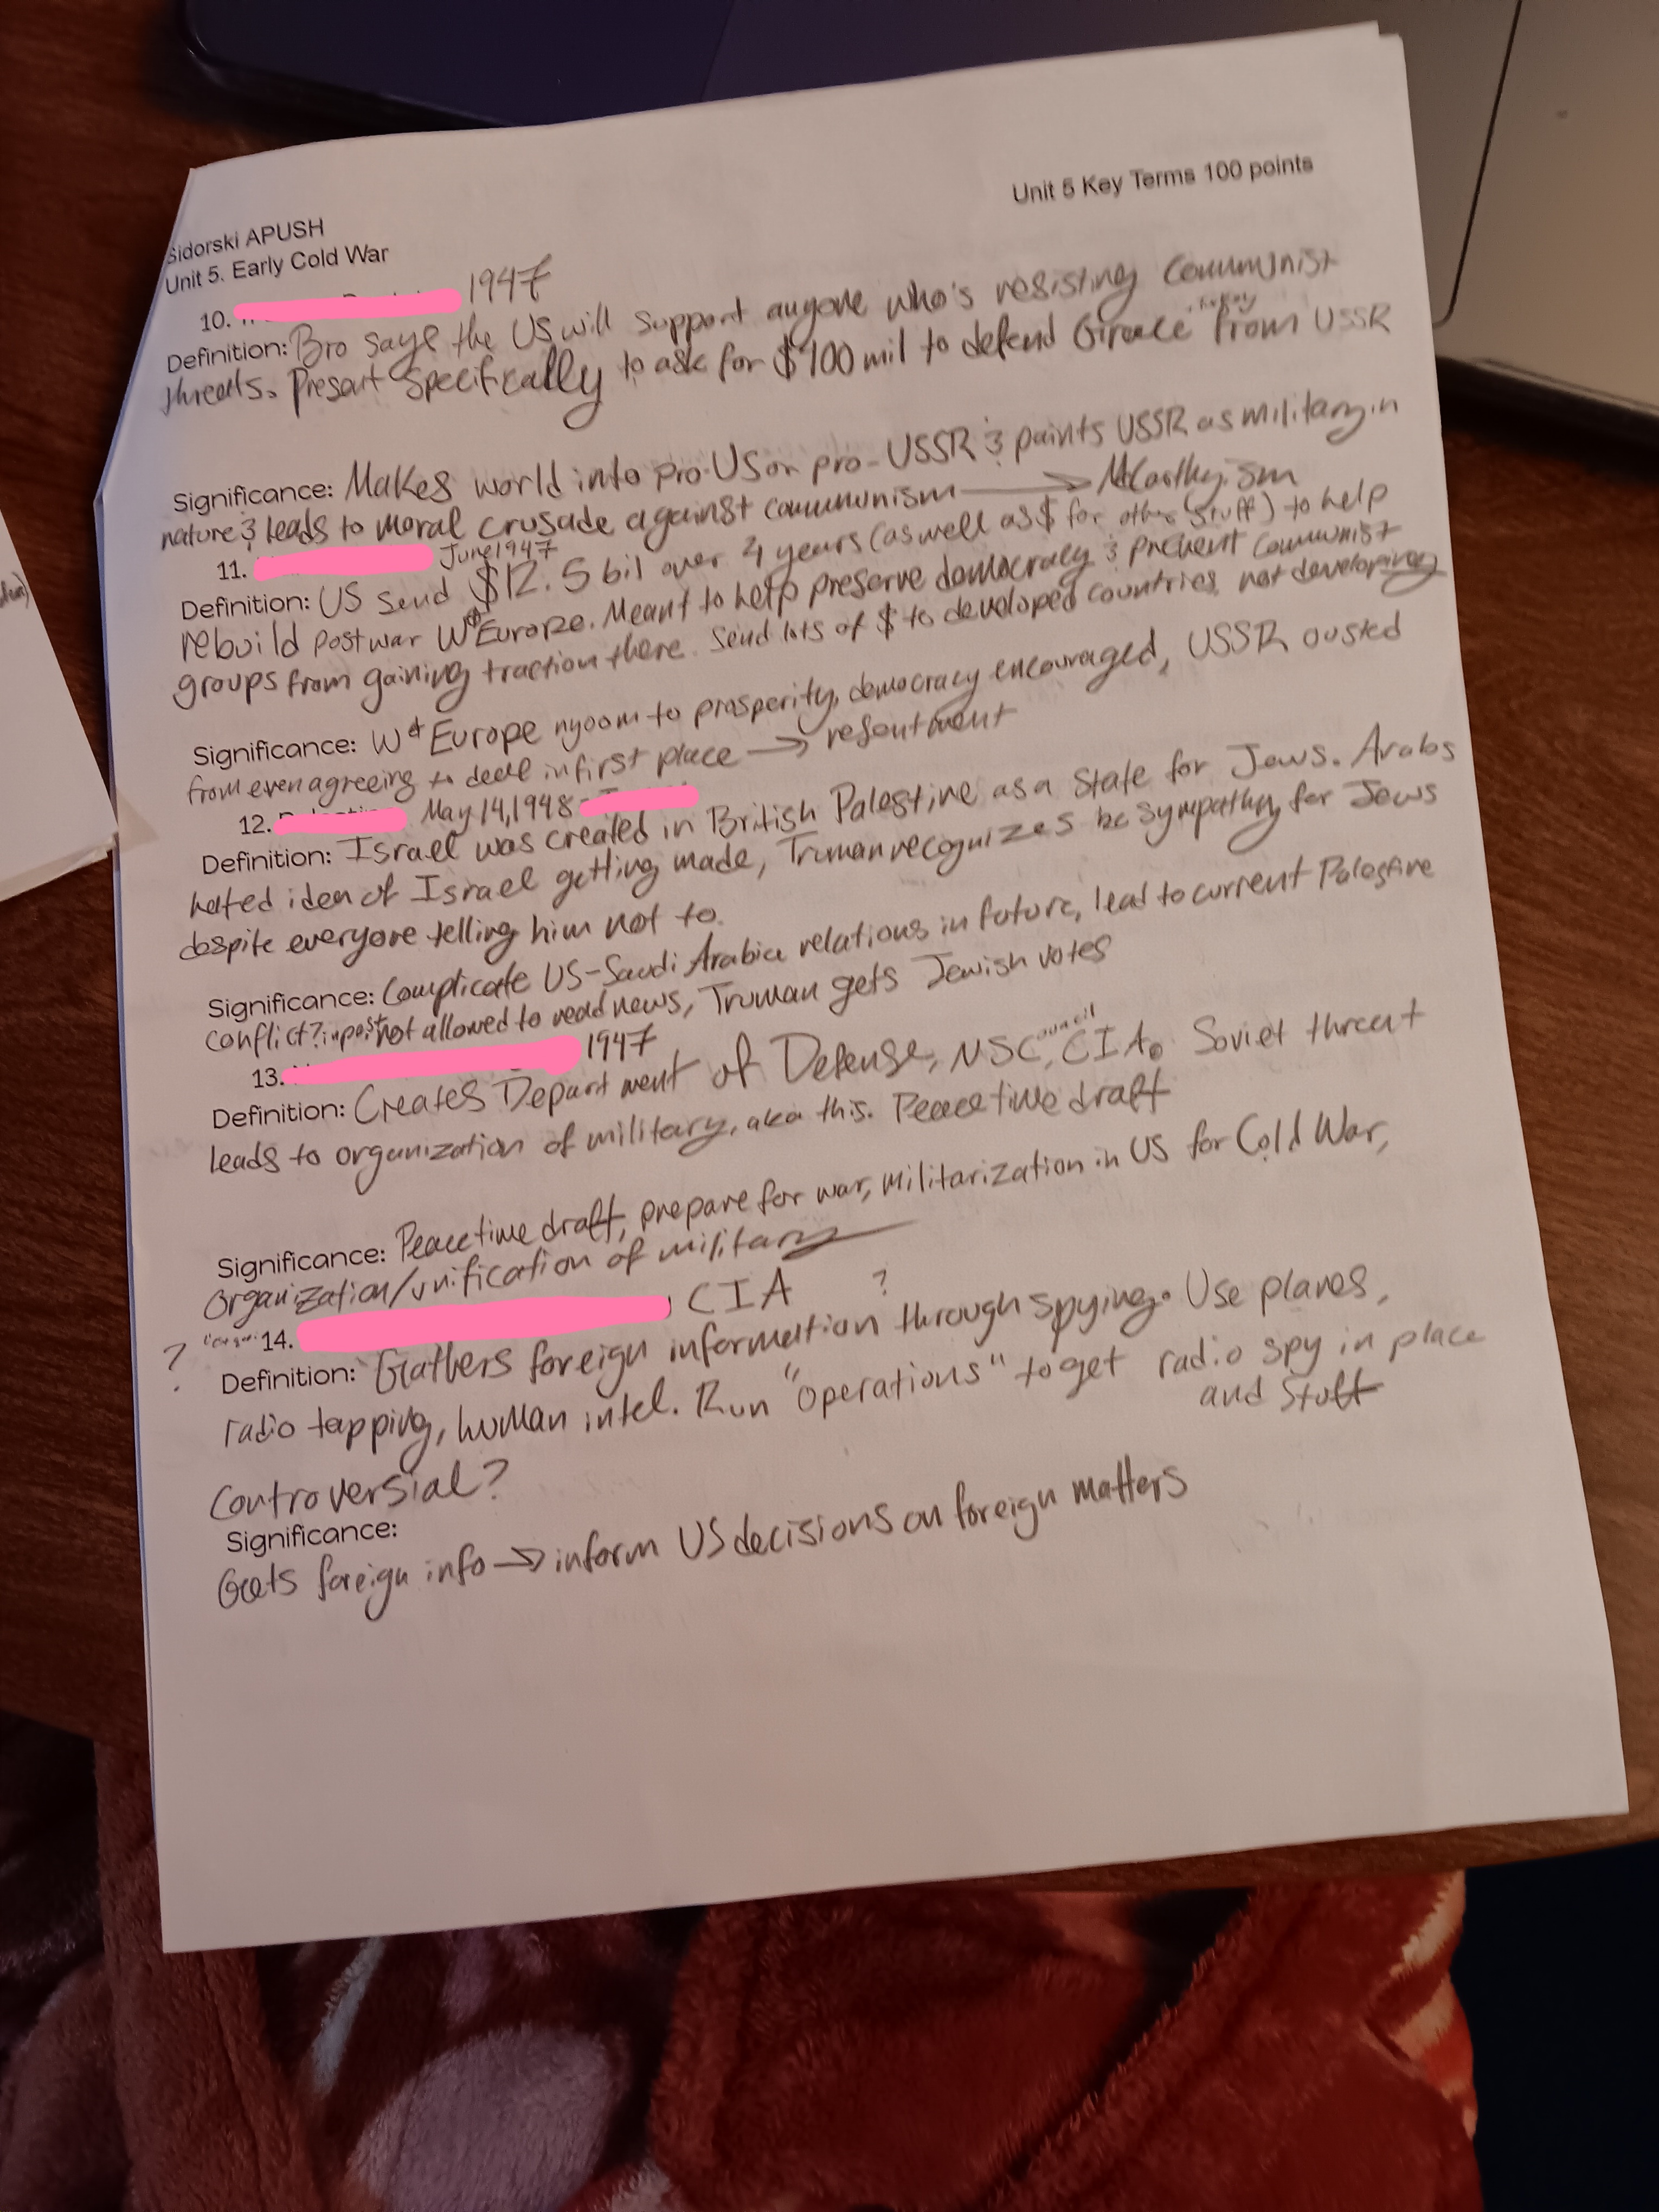 Unit 5 Key Terms 100 points
Sidorski APUSH
Unit 5. Early Cold War
10. 1947
Definition: Bro says the US will support anyone who's resisting Communist
threats. Present specifically to ask for $400 mil to defend Greece from USSR
Significance: Makes world into pro-US or pro-USSR & paints USSR as military in
nature & leads to moral crusade against communism → McCarthyism
11. June 1947
Definition: US send $12.5 bil over 4 years (as well as $ for other stuff) to help
rebuild postwar W Europe. Meant to help preserve democracy & prevent Communist
groups from gaining traction there. Send lots of $ to developed countries, not developing
Significance: W Europe nyoom to prosperity, democracy encouraged, USSR ousted
from even agreeing to deal in first place → resentment
12. May 14, 1948
Definition: Israel was created in British Palestine as a state for Jews. Arabs
hated idea of Israel getting made, Truman recognizes bc sympathy for Jews
despite everyone telling him not to.
Significance: Complicate US-Saudi Arabia relations in future, lead to current Palestine
conflict? in past not allowed to read news, Truman gets Jewish votes
13. 1947
Definition: Creates Department of Defense, NSCouncil, CIA. Soviet threat
leads to organization of military, aka this. Peacetime draft
Significance: Peacetime draft, prepare for war, militarization in US for Cold War,
organization/unification of military
? 14. CIA ?
Definition: Gathers foreign information through spying. Use planes,
radio tapping, human intel. Run "operations" to get radio spy in place
and stuff
Controversial?
Significance:
Gets foreign info → inform US decisions on foreign matters